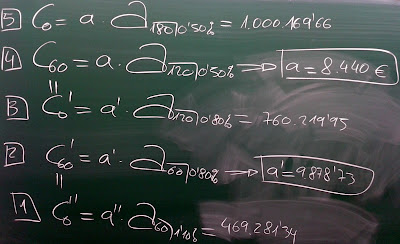 5 C₀ = a · a180|0'50% = 1.000.169'66
4 C₆₀ = a · a120|0'50% → a = 8.440 €
"
3 C₀' = a' · a120|0'80% = 760.219'95
2 C₆₀' = a' · a60|0'80% → a' = 9.878'73
"
1 C₀'' = a'' · a60|1'10% = 469.281'34